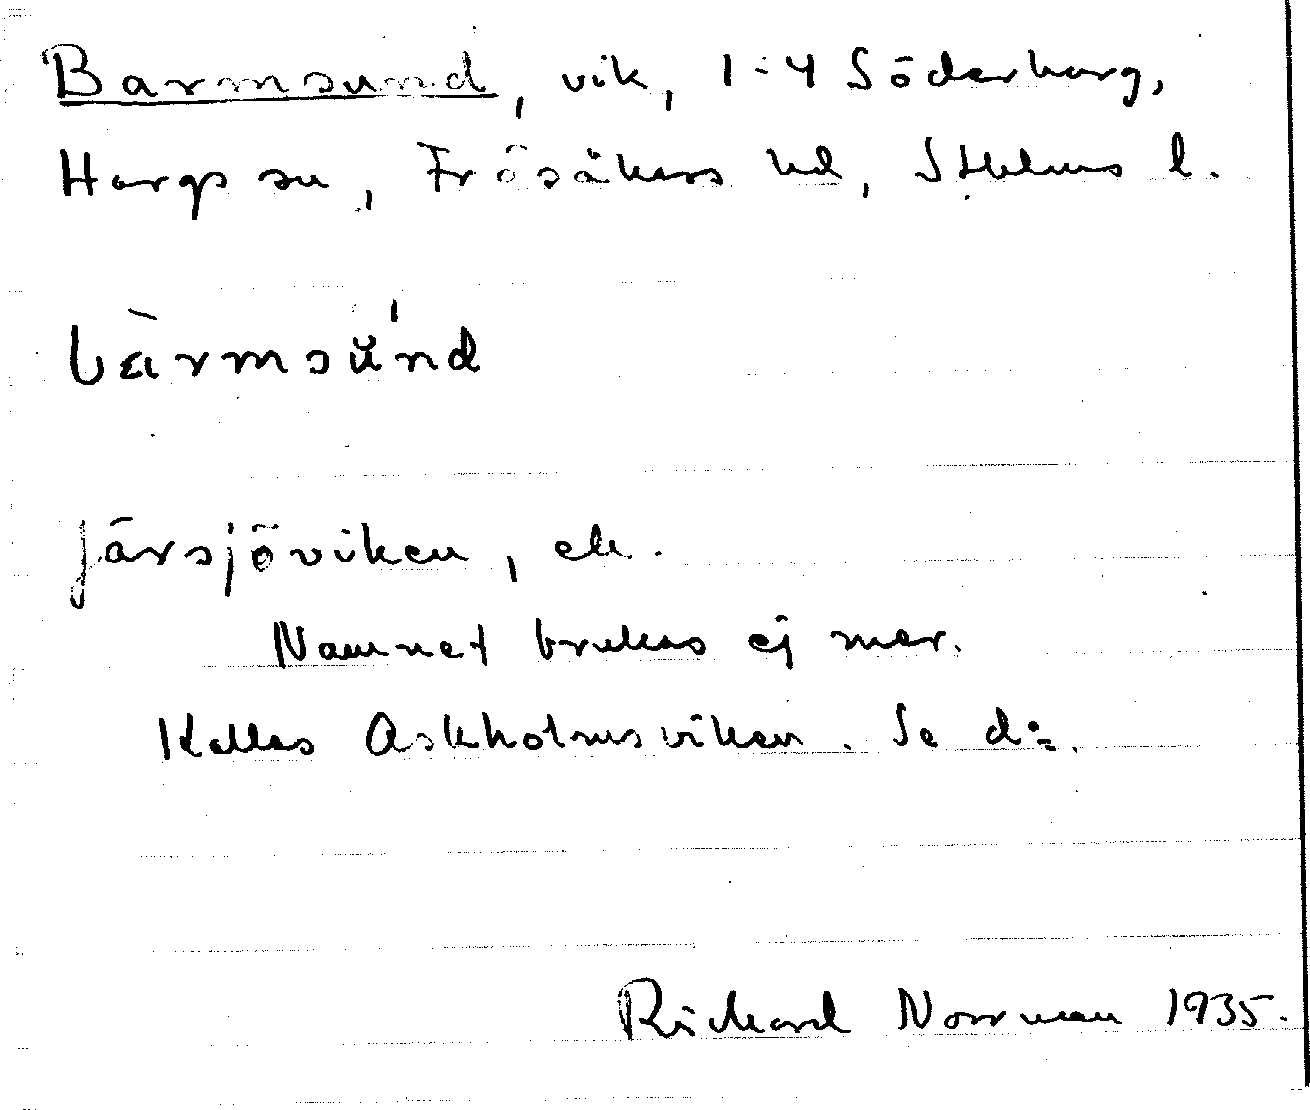 Barmsund, vik, 1-4 Söderharg,
Hargs sn, Frösåkers hd, Sthlms l.
bàrmsún̆d
Järsjöviken, ek.
Namnet brukas ej mer.
Kallas Askholmsviken. Se d:o.
Rickard Norrman 1935.